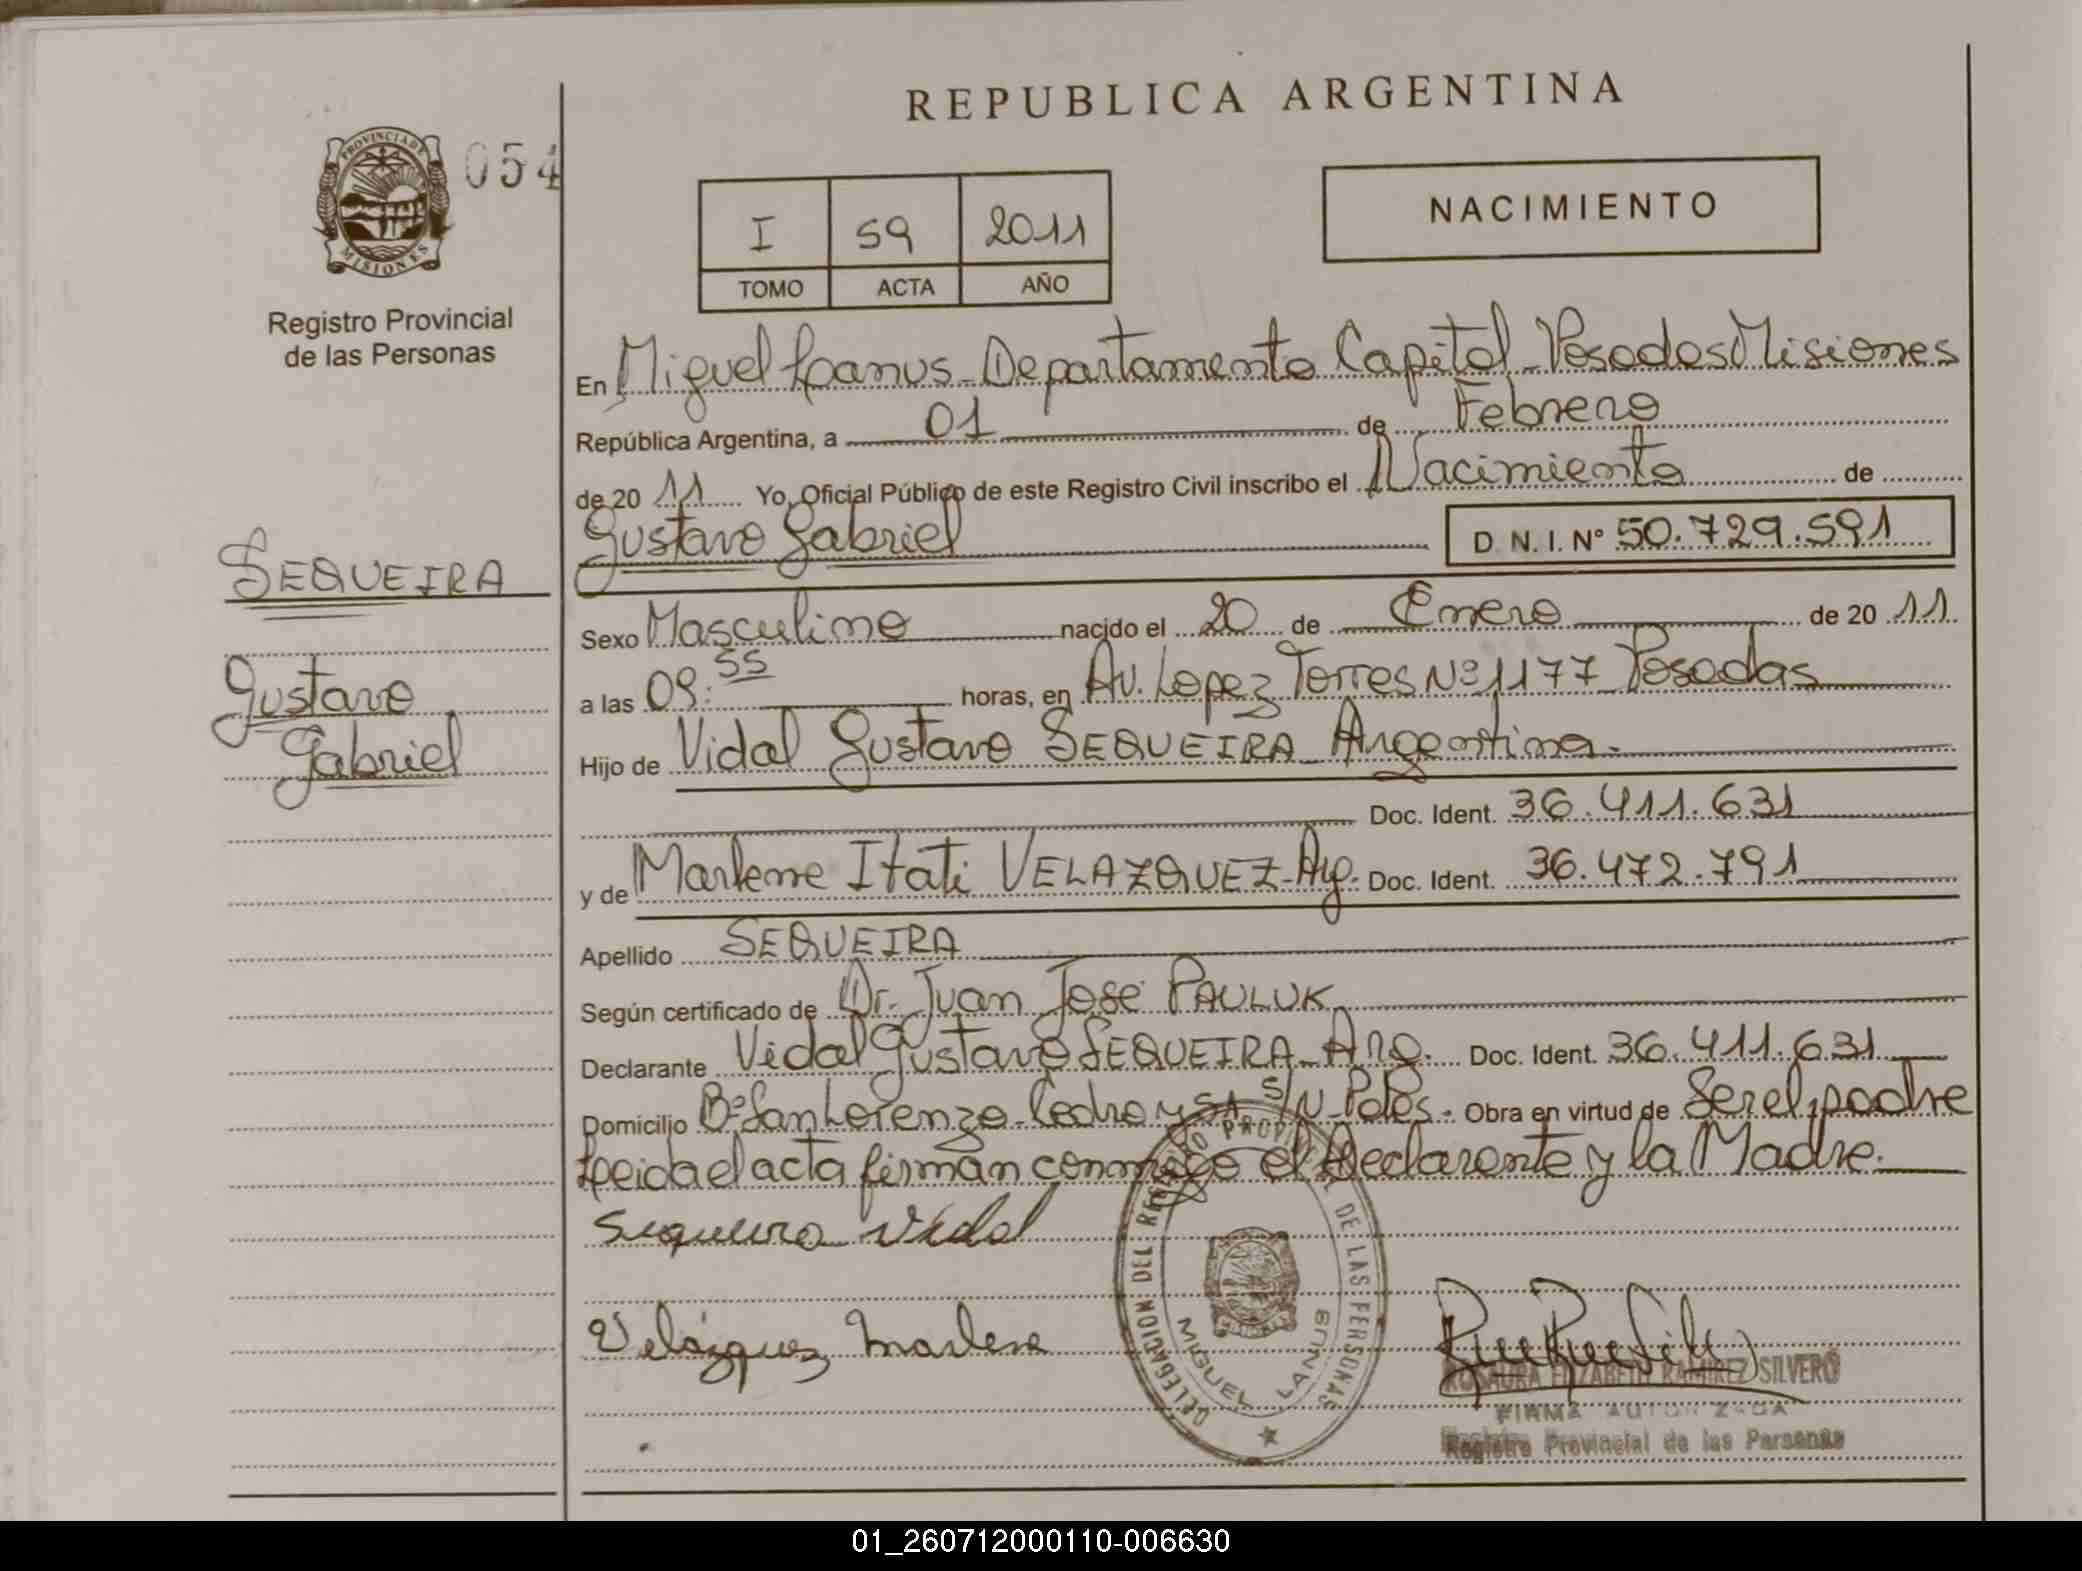 REPUBLICA ARGENTINA
PROVINCIA DE
MISIONES
054
Registro Provincial
de las Personas
I 59 2011
TOMO ACTA AÑO
NACIMIENTO
SEQUEIRA
Gustavo
Gabriel
En Miguel Lanus - Departamento Capital - Posadas Misiones
República Argentina, a 01 de Febrero
de 20 11 Yo, Oficial Público de este Registro Civil inscribo el Nacimiento de
Gustavo Gabriel D. N. I. Nº 50.729.591
Sexo Masculino nacido el 20 de Enero de 20 11
a las 09:55 horas, en Av. Lopez Torres Nº 1177 Posadas
Hijo de Vidal Gustavo SEQUEIRA Argentina.
Doc. Ident. 36.411.631
y de Marlene Itati VELAZQUEZ - Arg. Doc. Ident. 36.472.791
Apellido SEQUEIRA
Según certificado de Dr. Juan José PAULUK
Declarante Vidal Gustavo SEQUEIRA - Arg. Doc. Ident. 36.411.631
Domicilio Bº San Lorenzo - Cedro y 51 S/N Pdas. Obra en virtud de Ser el padre
Leida el acta firman conmigo el Declarante y la Madre.
Sequeira Vidal
Velázquez Marlene
DELEGACION DEL REGISTRO PROVINCIAL DE LAS PERSONAS
MIGUEL LANUS
ROSAURA ELIZABETH RAMIREZ SILVERO
FIRMA AUTORIZADA
Registro Provincial de las Personas
01_260712000110-006630